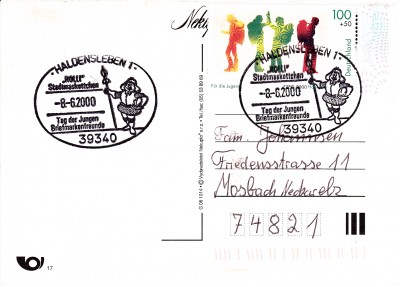 HALDENSLEBEN 1
"ROLLI"
Stadtmaskottchen
-8.-6.2000
Tag der Jungen
Briefmarkenfreunde
39340
100
+50
Deutschland
Für die Jugend
HALDENSLEBEN 1
"ROLLI"
Stadtmaskottchen
-8.-6.2000
Tag der Jungen
Briefmarkenfreunde
39340
Fam. Johannsen
Friedensstrasse 11
Mosbach Neckarelz
74821
17